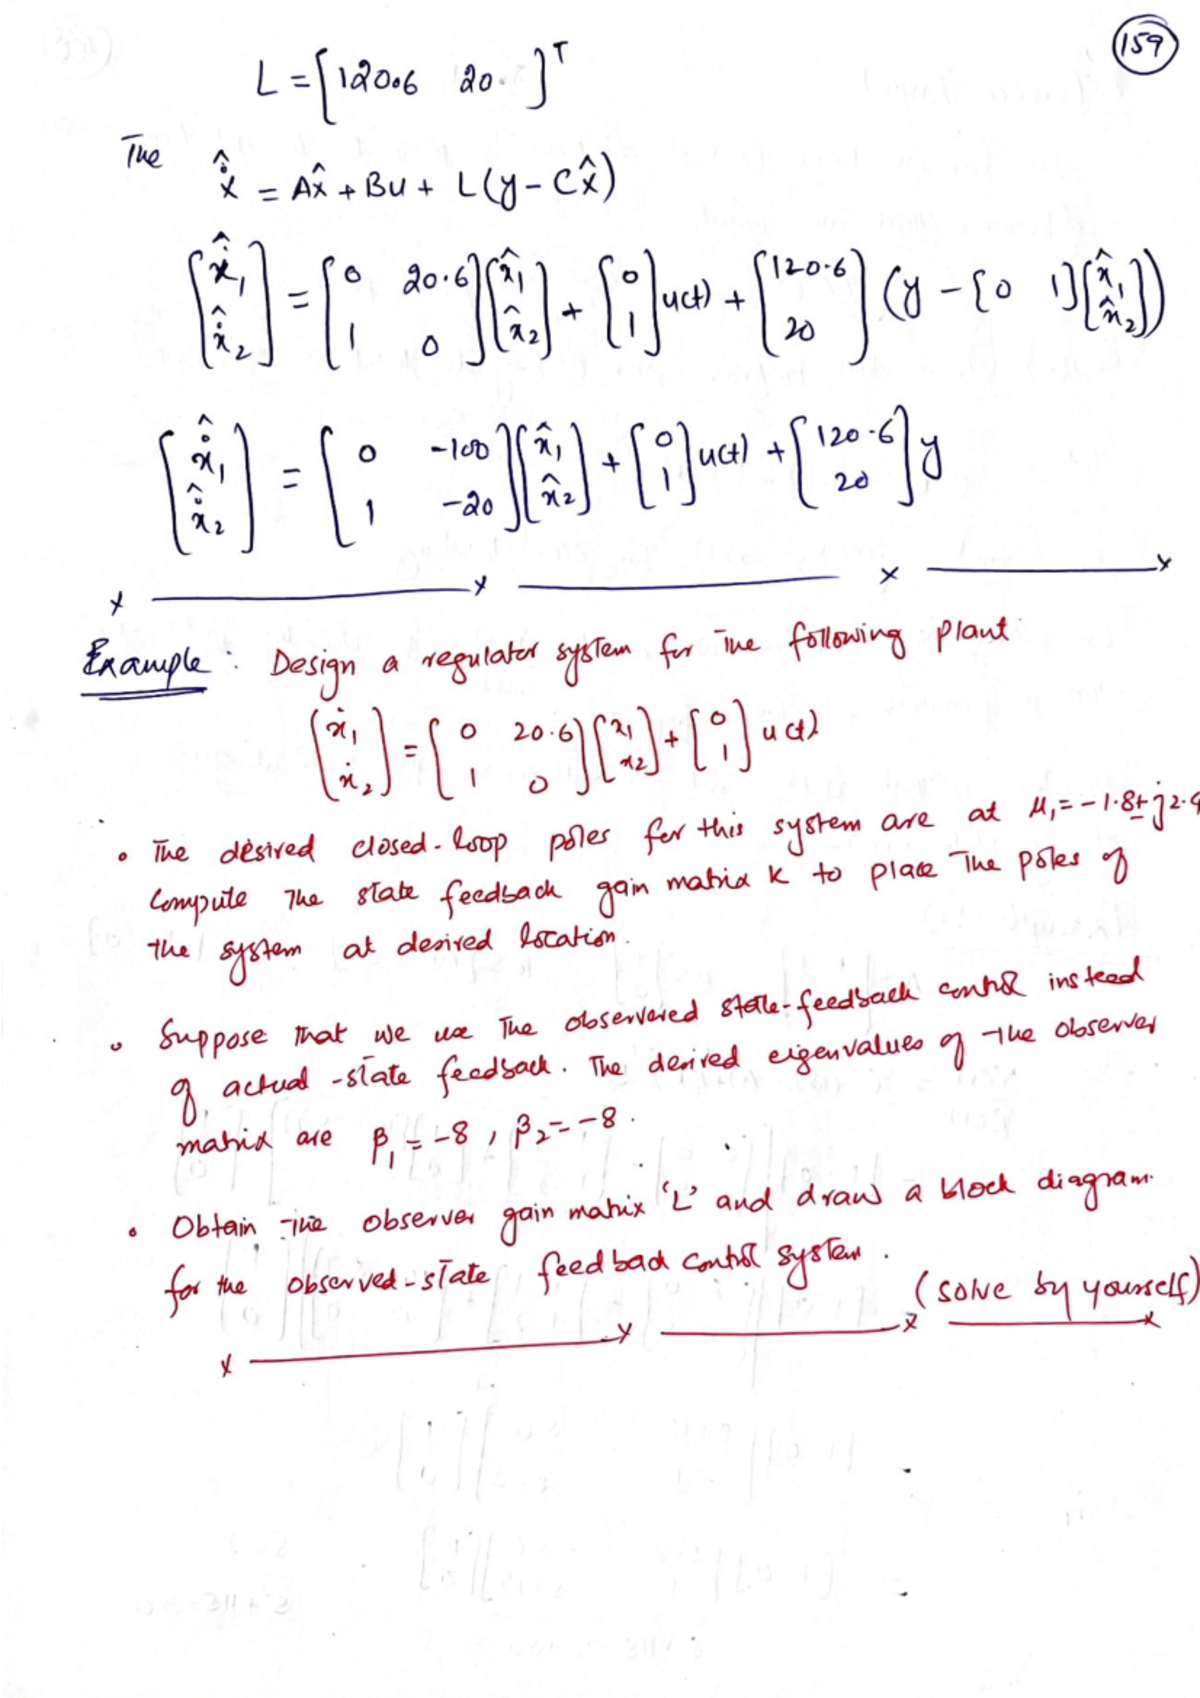 159
L = [120.6 20.]ᵀ
The
x̂̇ = Ax̂ + Bu + L(y - Cx̂)
[x̂̇₁ x̂̇₂] = [0 20.6; 1 0] [x̂₁ x̂₂] + [0 1] u(t) + [120.6 20] (y - [0 1] [x̂₁ x̂₂])
[x̂̇₁ x̂̇₂] = [0 -100; 1 -20] [x̂₁ x̂₂] + [0 1] u(t) + [120.6 20] y
x ——— x ——— x ——— x
Example : Design a regulator system for the following plant
[ẋ₁ ẋ₂] = [0 20.6; 1 0] [x₁ x₂] + [0 1] u(t)
• The desired closed-loop poles for this system are at μ₁ = -1.8 ± j2.4
Compute the state feedback gain matrix K to place the poles of
the system at desired location.
• Suppose that we use the observered state-feedback control instead
of actual-state feedback. The desired eigenvalues of the observer
matrix are β₁ = -8 , β₂ = -8 .
• Obtain the observer gain matrix 'L' and draw a block diagram.
for the observed-state feedback control system .
(solve by yourself)
x ——— x ——— x ——— x